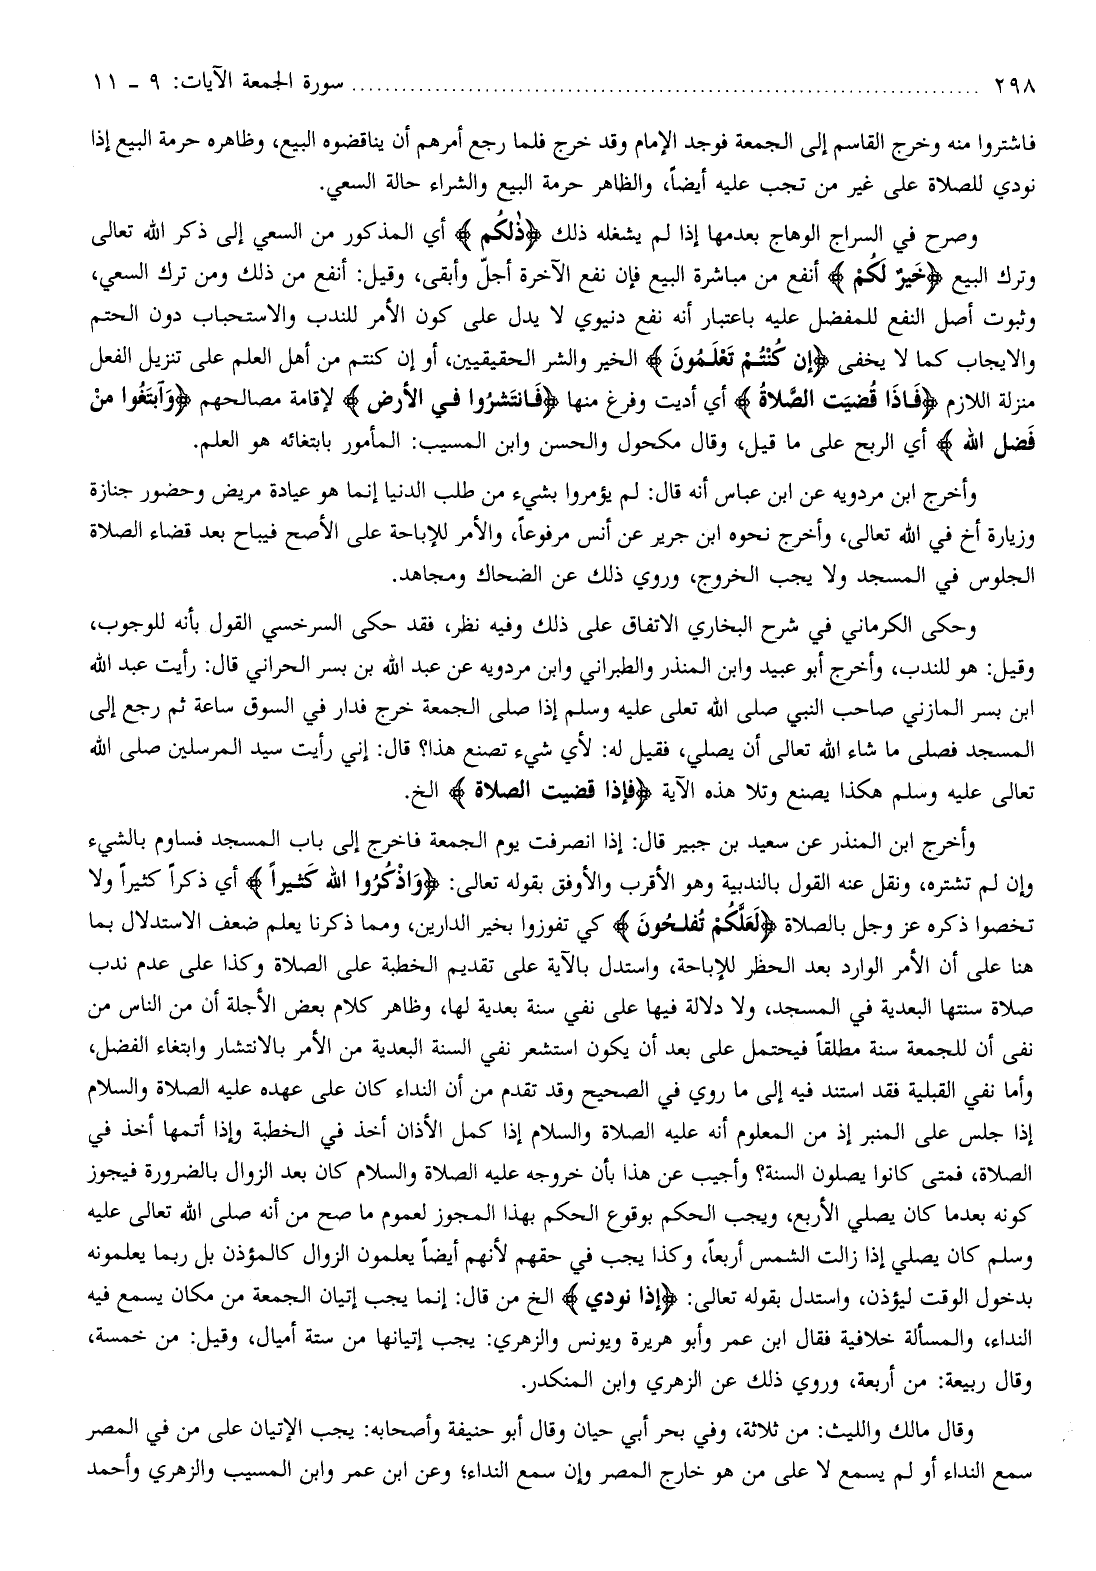 ٢٩٨ ........................................................................ سورة الجمعة الآيات: ٩ - ١١
فاشتروا منه وخرج القاسم إلى الجمعة فوجد الإمام وقد خرج فلما رجع أمرهم أن يناقضوه البيع، وظاهره حرمة البيع إذا
نودي للصلاة على غير من تجب عليه أيضاً، والظاهر حرمة البيع والشراء حالة السعي.
وصرح في السراج الوهاج بعدمها إذا لم يشغله ذلك ﴿ذٰلكُم﴾ أي المذكور من السعي إلى ذكر الله تعالى
وترك البيع ﴿خَيرٌ لَكُمْ﴾ أنفع من مباشرة البيع فإن نفع الآخرة أجلّ وأبقى، وقيل: أنفع من ذلك ومن ترك السعي،
وثبوت أصل النفع للمفضل عليه باعتبار أنه نفع دنيوي لا يدل على كون الأمر للندب والاستحباب دون الحتم
والايجاب كما لا يخفى ﴿إن كُنْتُـمْ تَعْلَـمُونَ﴾ الخير والشر الحقيقيين، أو إن كنتم من أهل العلم على تنزيل الفعل
منزلة اللازم ﴿فَـاذَا قُضيَت الصَّلاةُ﴾ أي أديت وفرغ منها ﴿فَـانتَشرُوا فـي الأرض﴾ لإقامة مصالحهم ﴿وَآبتَغُوا منْ
فَضل الله﴾ أي الربح على ما قيل، وقال مكحول والحسن وابن المسيب: المأمور بابتغائه هو العلم.
وأخرج ابن مردويه عن ابن عباس أنه قال: لم يؤمروا بشيء من طلب الدنيا إنما هو عيادة مريض وحضور جنازة
وزيارة أخ في الله تعالى، وأخرج نحوه ابن جرير عن أنس مرفوعاً، والأمر للإباحة على الأصح فيباح بعد قضاء الصلاة
الجلوس في المسجد ولا يجب الخروج، وروي ذلك عن الضحاك ومجاهد.
وحكى الكرماني في شرح البخاري الاتفاق على ذلك وفيه نظر، فقد حكى السرخسي القول بأنه للوجوب،
وقيل: هو للندب، وأخرج أبو عبيد وابن المنذر والطبراني وابن مردويه عن عبد الله بن بسر الحراني قال: رأيت عبد الله
ابن بسر المازني صاحب النبي صلى الله تعلى عليه وسلم إذا صلى الجمعة خرج فدار في السوق ساعة ثم رجع إلى
المسجد فصلى ما شاء الله تعالى أن يصلي، فقيل له: لأي شيء تصنع هذا؟ قال: إني رأيت سيد المرسلين صلى الله
تعالى عليه وسلم هكذا يصنع وتلا هذه الآية ﴿فإذا قضيت الصلاة﴾ الخ.
وأخرج ابن المنذر عن سعيد بن جبير قال: إذا انصرفت يوم الجمعة فاخرج إلى باب المسجد فساوم بالشيء
وإن لم تشتره، ونقل عنه القول بالندبية وهو الأقرب والأوفق بقوله تعالى: ﴿وَاذْكُرُوا الله كَثـيراً﴾ أي ذكراً كثيراً ولا
تخصوا ذكره عز وجل بالصلاة ﴿لَعَلَّكُمْ تُفلـحُونَ﴾ كي تفوزوا بخير الدارين، ومما ذكرنا يعلم ضعف الاستدلال بما
هنا على أن الأمر الوارد بعد الحظر للإباحة، واستدل بالآية على تقديم الخطبة على الصلاة وكذا على عدم ندب
صلاة سنتها البعدية في المسجد، ولا دلالة فيها على نفي سنة بعدية لها، وظاهر كلام بعض الأجلة أن من الناس من
نفى أن للجمعة سنة مطلقاً فيحتمل على بعد أن يكون استشعر نفي السنة البعدية من الأمر بالانتشار وابتغاء الفضل،
وأما نفي القبلية فقد استند فيه إلى ما روي في الصحيح وقد تقدم من أن النداء كان على عهده عليه الصلاة والسلام
إذا جلس على المنبر إذ من المعلوم أنه عليه الصلاة والسلام إذا كمل الأذان أخذ في الخطبة وإذا أتمها أخذ في
الصلاة، فمتى كانوا يصلون السنة؟ وأجيب عن هذا بأن خروجه عليه الصلاة والسلام كان بعد الزوال بالضرورة فيجوز
كونه بعدما كان يصلي الأربع، ويجب الحكم بوقوع الحكم بهذا المجوز لعموم ما صح من أنه صلى الله تعالى عليه
وسلم كان يصلي إذا زالت الشمس أربعاً، وكذا يجب في حقهم لأنهم أيضاً يعلمون الزوال كالمؤذن بل ربما يعلمونه
بدخول الوقت ليؤذن، واستدل بقوله تعالى: ﴿إذا نودي﴾ الخ من قال: إنما يجب إتيان الجمعة من مكان يسمع فيه
النداء، والمسألة خلافية فقال ابن عمر وأبو هريرة ويونس والزهري: يجب إتيانها من ستة أميال، وقيل: من خمسة،
وقال ربيعة: من أربعة، وروي ذلك عن الزهري وابن المنكدر.
وقال مالك والليث: من ثلاثة، وفي بحر أبي حيان وقال أبو حنيفة وأصحابه: يجب الإتيان على من في المصر
سمع النداء أو لم يسمع لا على من هو خارج المصر وإن سمع النداء؛ وعن ابن عمر وابن المسيب والزهري وأحمد